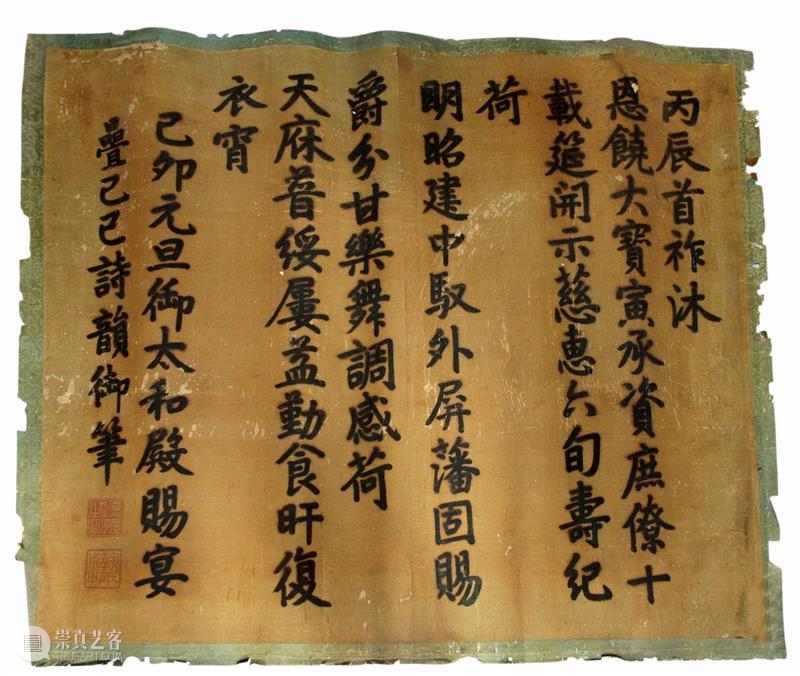 丙辰首祚沐
恩饒大寶寅承資庶僚十
載筵開示慈惠六旬壽紀
荷
明昭建中馭外屏藩固賜
爵分甘樂舞調感荷
天庥普綏屢益勤食旰復
衣宵
己卯元旦御太和殿賜宴
疊己巳詩韻御筆
崇真艺客
TRUEART.COM